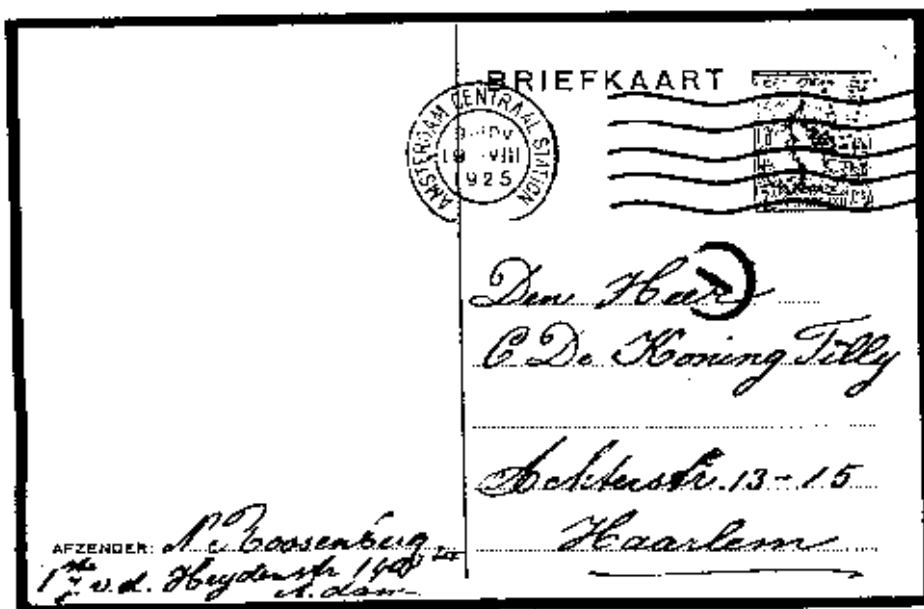 BRIEFKAART
AMSTERDAM CENTRAAL STATION
19 VIII
1925
Den Heer
C De Koning Tilly
Achterstr. 13-15
Haarlem
AFZENDER: N. Roosenburg
1ste v.d. Heydenstr
A.dam